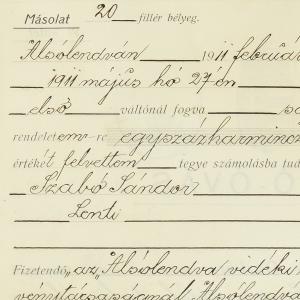 Másolat 20 fillér bélyeg.
Alsólendván 1911 februá
1911 május hó 27-én
első váltónál fogva
rendeletem-re egyszázharmincz
értékét felvettem tegye számolásba tud
Szabó Sándor
Lenti
Fizetendő „az Alsólendva vidéki
Alsólendva